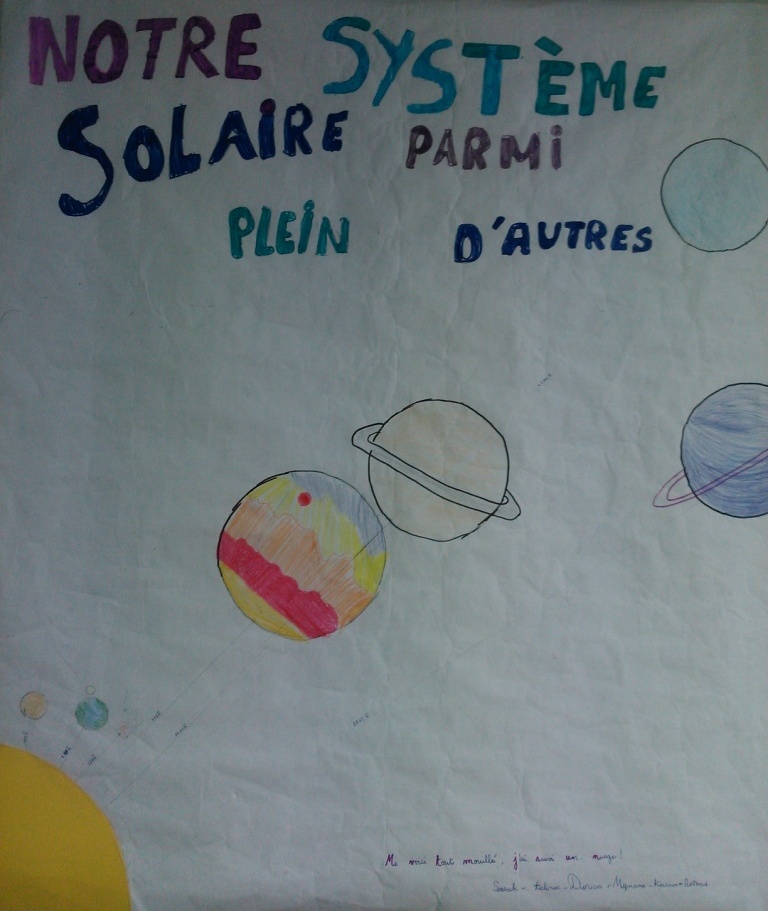 NOTRE SYSTÈME
SOLAIRE PARMI
PLEIN D'AUTRES
Me voici tout mouillé, j'ai suivi un nuage!
Sarah - Dorian